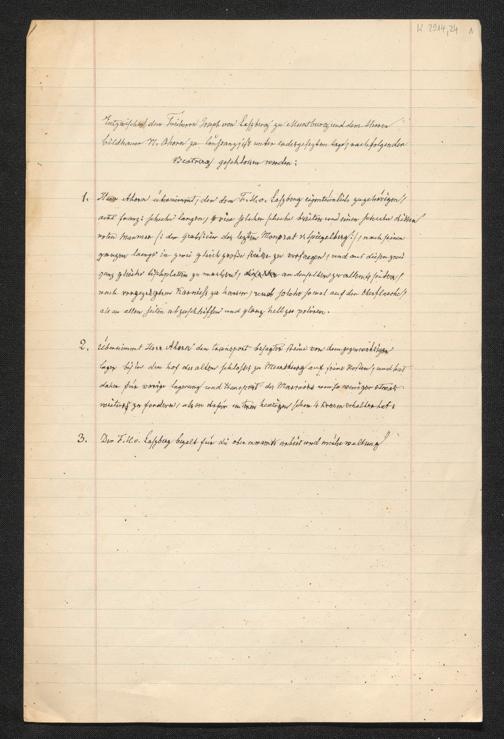 K 2914,24 1
Entzwischen dem Freiherrn Joseph von Laßberg zu Meersburg und dem Herrn
bildhauer N. Ahorn zu unter endesgeseztem tage nachfolgender
Beatrag geschlossen worden:
1. Herr Ahorn übernimmt, den dem F. H. v. Laßberg eigentümlich zugehörigen,
acht franz: schuhe langen, vier solcher schuhe breiten und einen schuh dikken
roten marmor /: der grabstein des lezten Mangoat v. Spiegelberg:/, nach seiner
ganzen länge in zwei gleich große stüke zu versaegen, und aus diesen zwei
ganz gleiche tischplatten zu machen, an denselben zu allen seiten,
nach vorgezeigtem Karnieß zu hauen, und solche sowol auf der Oberflaeche,
als an allen seiten abzuschleiffen und glanz hell zu poliren.
2. Übernimmt Herr Ahorn den transport besagter steine von dem gegenwärtigen
lager bis in den hof des alten schlosses zu Meersburg auf seine Kosten, und hat
daher für vorige lagerung und transport des Marmors um so weniger etwas
weiters zu fordern, als er dafür schon 4 Kronen erhalten hat.
3. Der F. H. v. Laßberg bezalt für die oben arbeit und mühe waltung